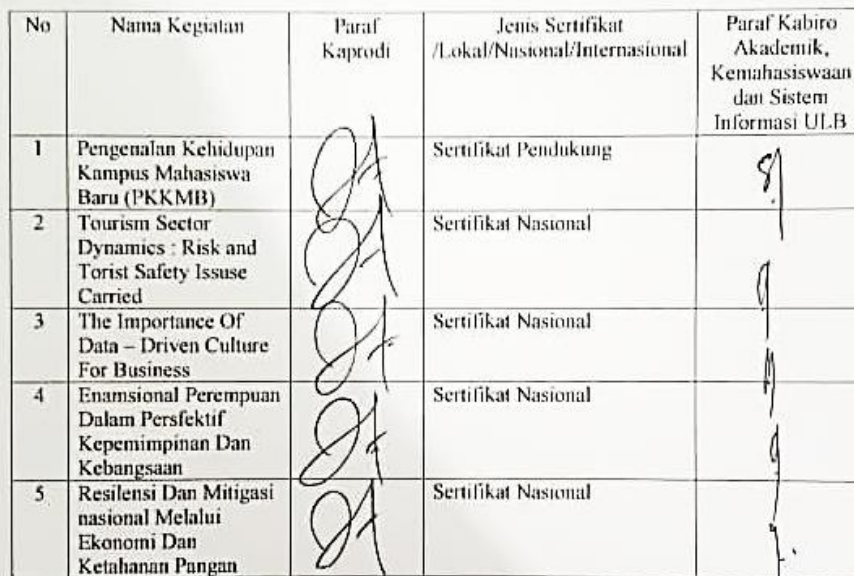 No
Nama Kegiatan
Paraf
Kaprodi
Jenis Sertifikat
/Lokal/Nasional/Internasional
Paraf Kabiro
Akademik,
Kemahasiswaan
dan Sistem
Informasi ULB
1
Pengenalan Kehidupan
Kampus Mahasiswa
Baru (PKKMB)
Sertifikat Pendukung
2
Tourism Sector
Dynamics : Risk and
Torist Safety Issuse
Carried
Sertifikat Nasional
3
The Importance Of
Data – Driven Culture
For Business
Sertifikat Nasional
4
Enamsional Perempuan
Dalam Persfektif
Kepemimpinan Dan
Kebangsaan
Sertifikat Nasional
5
Resilensi Dan Mitigasi
nasional Melalui
Ekonomi Dan
Ketahanan Pangan
Sertifikat Nasional